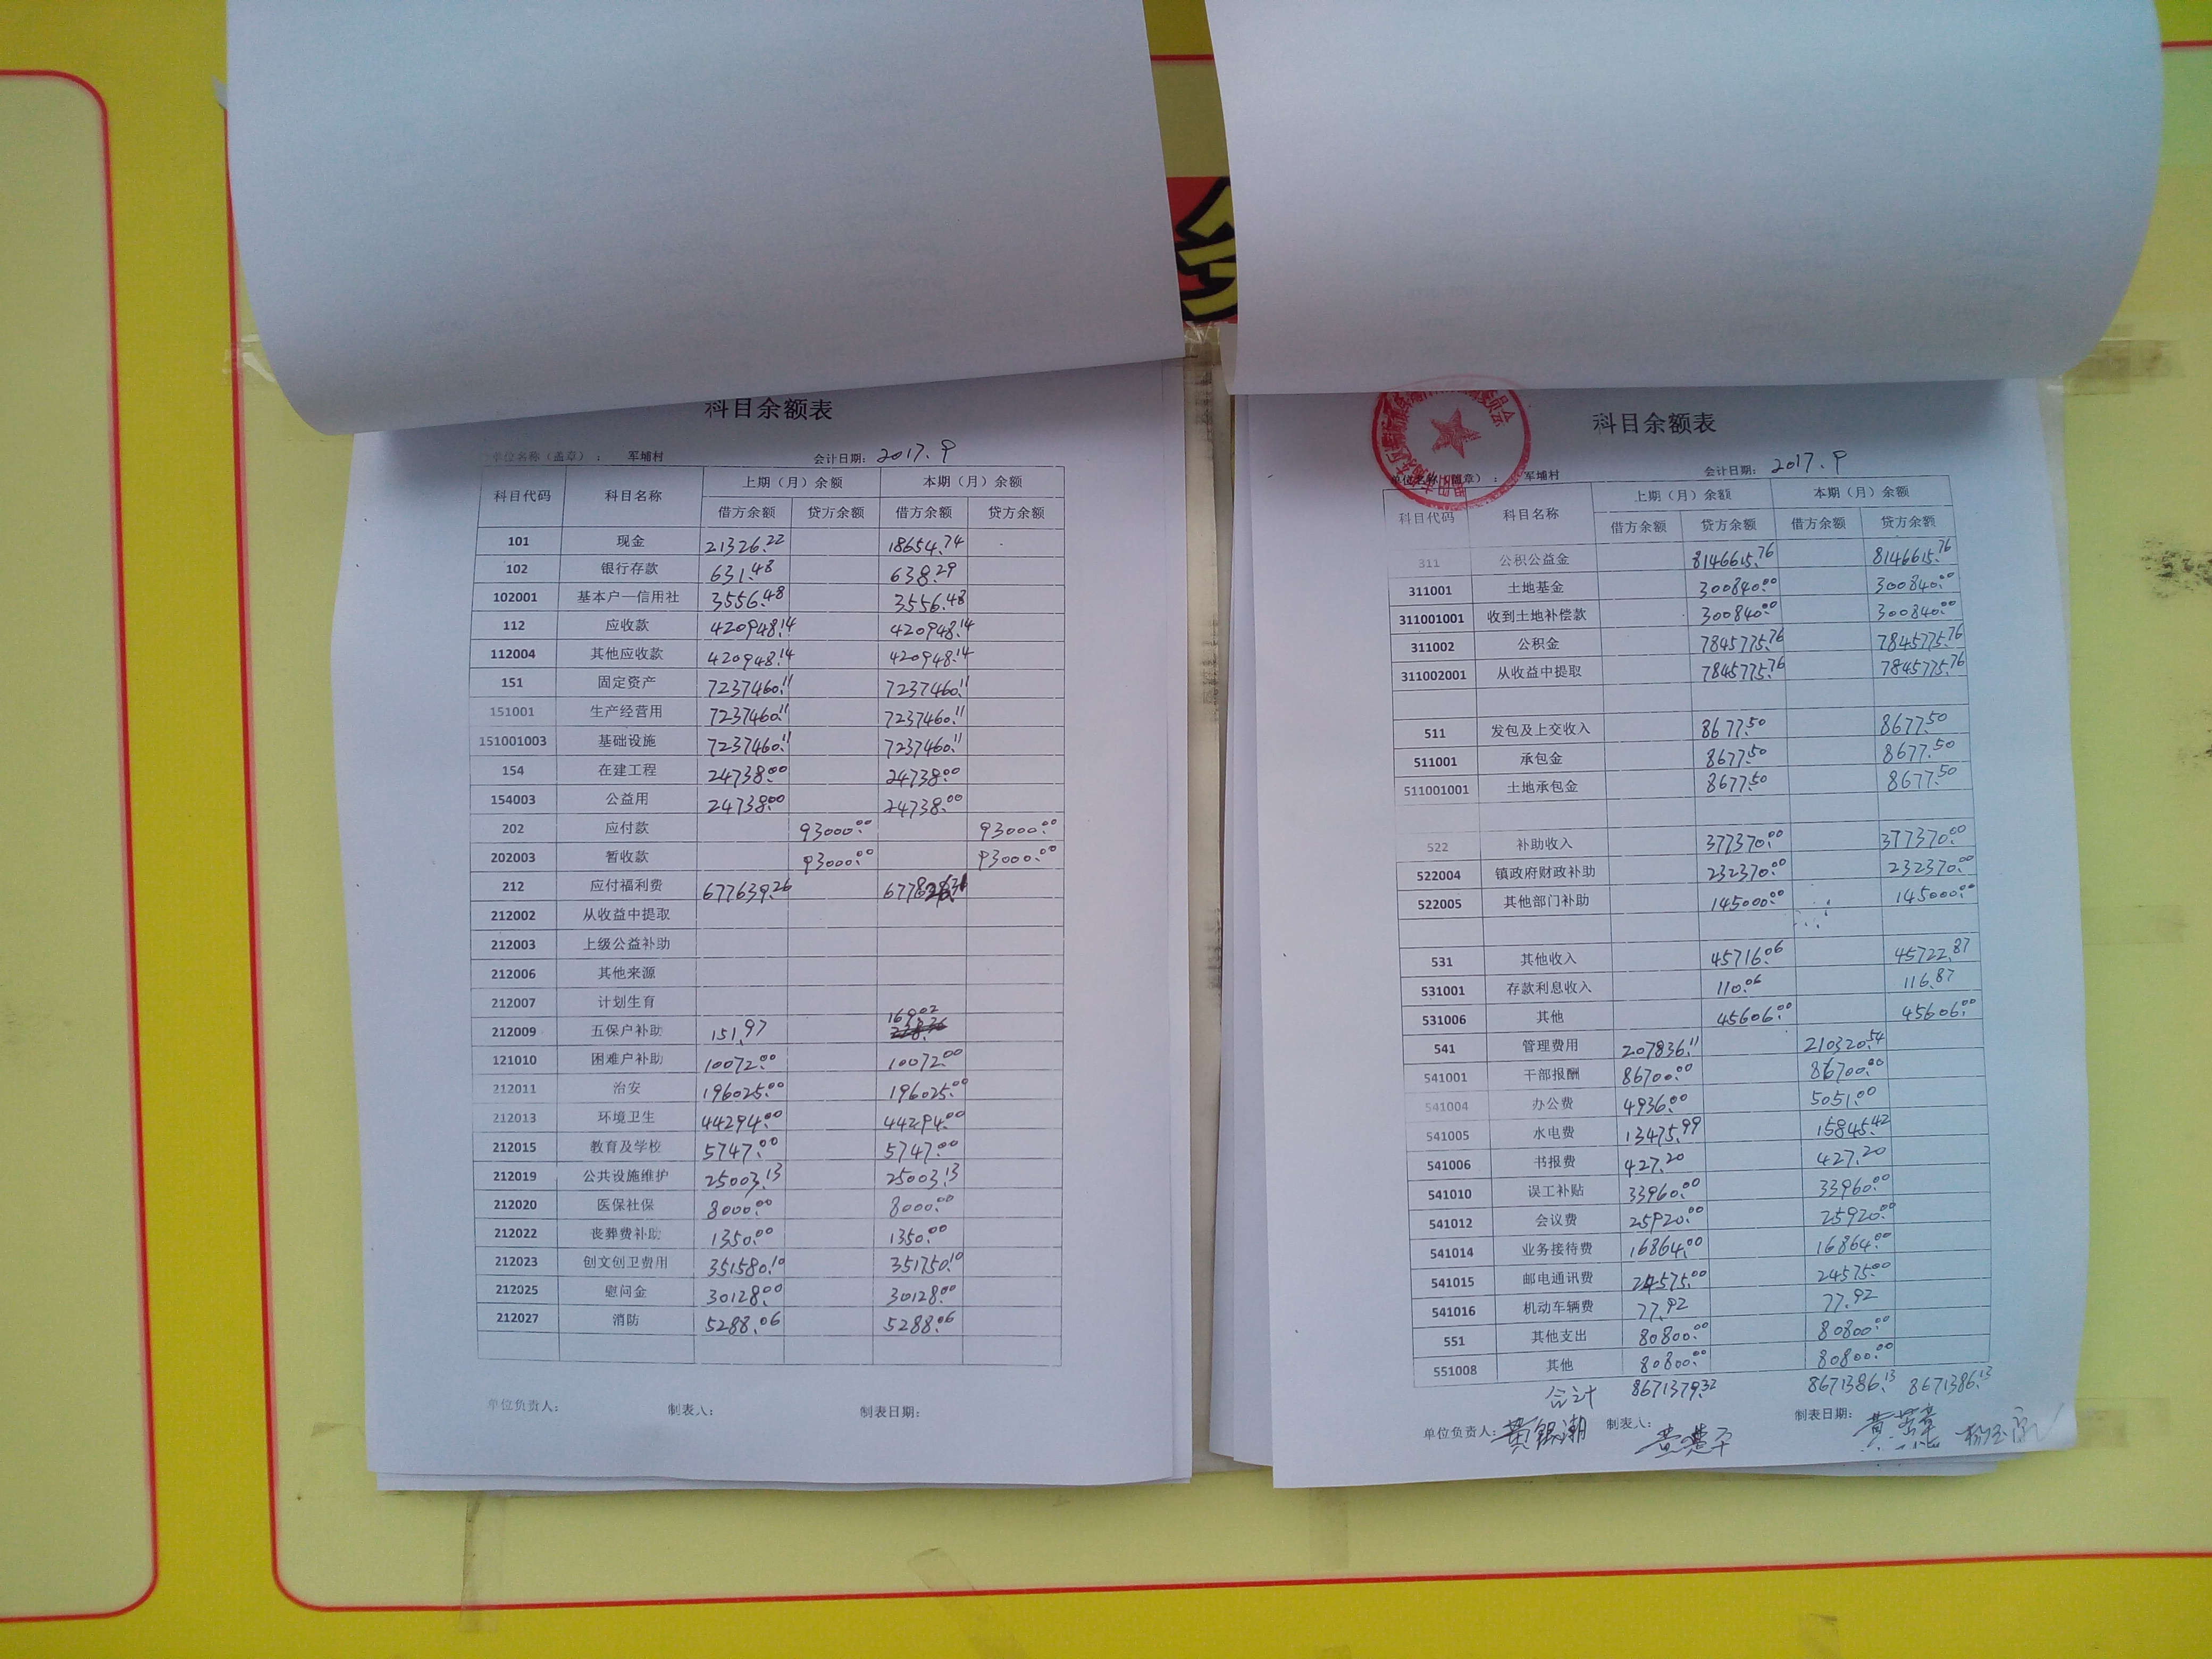 科目余额表
单位名称（盖章）： 军埔村 会计日期： 2017.9
科目代码 科目名称 上期（月）余额 本期（月）余额
借方余额 贷方余额 借方余额 贷方余额
101 现金 21326.22 18654.74
102 银行存款 631.48 638.29
102001 基本户一信用社 3556.48 3556.48
112 应收款 420948.14 420948.14
112004 其他应收款 420948.14 420948.14
151 固定资产 7237460.11 7237460.11
151001 生产经营用 7237460.11 7237460.11
151001003 基础设施 7237460.11 7237460.11
154 在建工程 24738.00 24738.00
154003 公益用 24738.00 24738.00
202 应付款 93000.00 93000.00
202003 暂收款 93000.00 93000.00
212 应付福利费 677639.26
212002 从收益中提取
212003 上级公益补助
212006 其他来源
212007 计划生育
212009 五保户补助 151.97 169.02
121010 困难户补助 10072.00 10072.00
212011 治安 196025.00 196025.00
212013 环境卫生 44294.00 44294.00
212015 教育及学校 5747.00 5747.00
212019 公共设施维护 25003.13 25003.13
212020 医保社保 8000.00 8000.00
212022 丧葬费补助 1350.00 1350.00
212023 创文创卫费用 351580.10 351750.10
212025 慰问金 30128.00 30128.00
212027 消防 5288.06 5288.06
单位负责人： 制表人： 制表日期：
科目余额表
单位名称（盖章）： 军埔村 会计日期： 2017.9
科目代码 科目名称 上期（月）余额 本期（月）余额
借方余额 贷方余额 借方余额 贷方余额
311 公积公益金 8146615.76 8146615.76
311001 土地基金 300840.00 300840.00
311001001 收到土地补偿款 300840.00 300840.00
311002 公积金 7845775.76 7845775.76
311002001 从收益中提取 7845775.76 7845775.76
511 发包及上交收入 8677.50 8677.50
511001 承包金 8677.50 8677.50
511001001 土地承包金 8677.50 8677.50
522 补助收入 377370.00 377370.00
522004 镇政府财政补助 232370.00 232370.00
522005 其他部门补助 145000.00 145000.00
531 其他收入 45716.06 45722.87
531001 存款利息收入 110.06 116.87
531006 其他 45606.00 45606.00
541 管理费用 207836.11 210320.54
541001 干部报酬 86700.00 86700.00
541004 办公费 4936.00 5051.00
541005 水电费 13475.99 15845.42
541006 书报费 427.20 427.20
541010 误工补贴 33960.00 33960.00
541012 会议费 25920.00 25920.00
541014 业务接待费 16864.00 16864.00
541015 邮电通讯费 24575.00 24575.00
541016 机动车辆费 77.92 77.92
551 其他支出 80800.00 80800.00
551008 其他 80800.00 80800.00
合计 8671379.32 8671386.13 8671386.13
单位负责人： 黄银潮 制表人： 制表日期：